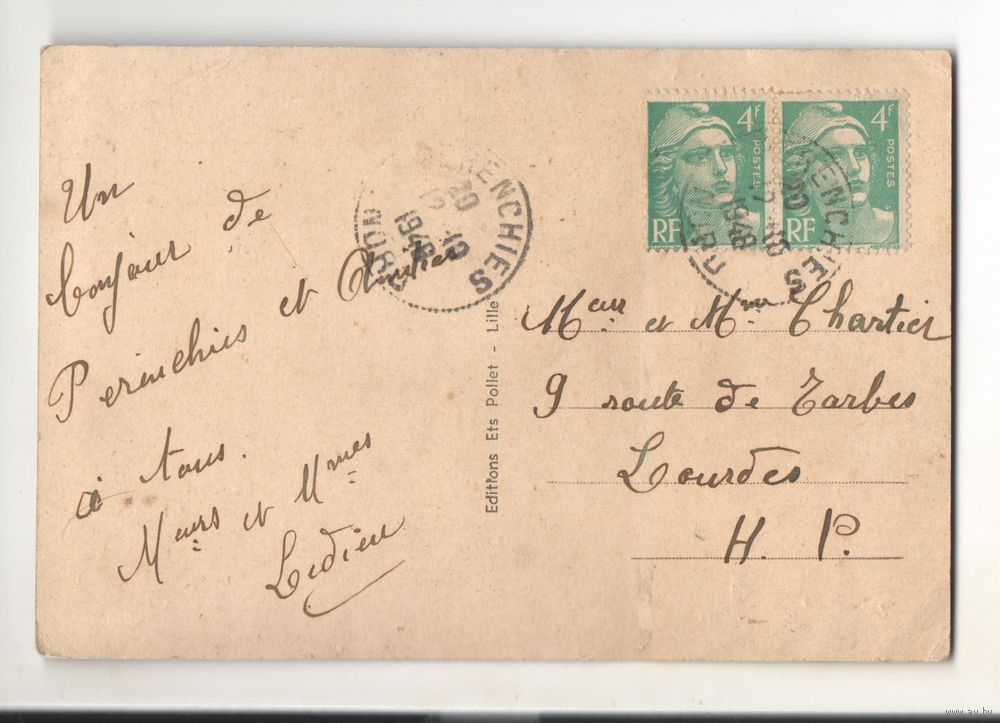 Un
bonjour de
Perenchies et
à tous.
Meurs et Mmes
Ledieu
Editions Ets Pollet - Lille
4F
POSTES
RF
4F
POSTES
RF
PERENCHIES
NORD
1948
Meur et Mme Chartier
9 route de Tarbes
Lourdes
H. P.
www.ay.by